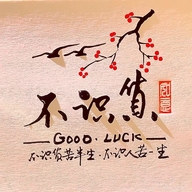 不识货
GOOD·LUCK
不识货苦半生·不识人苦一生